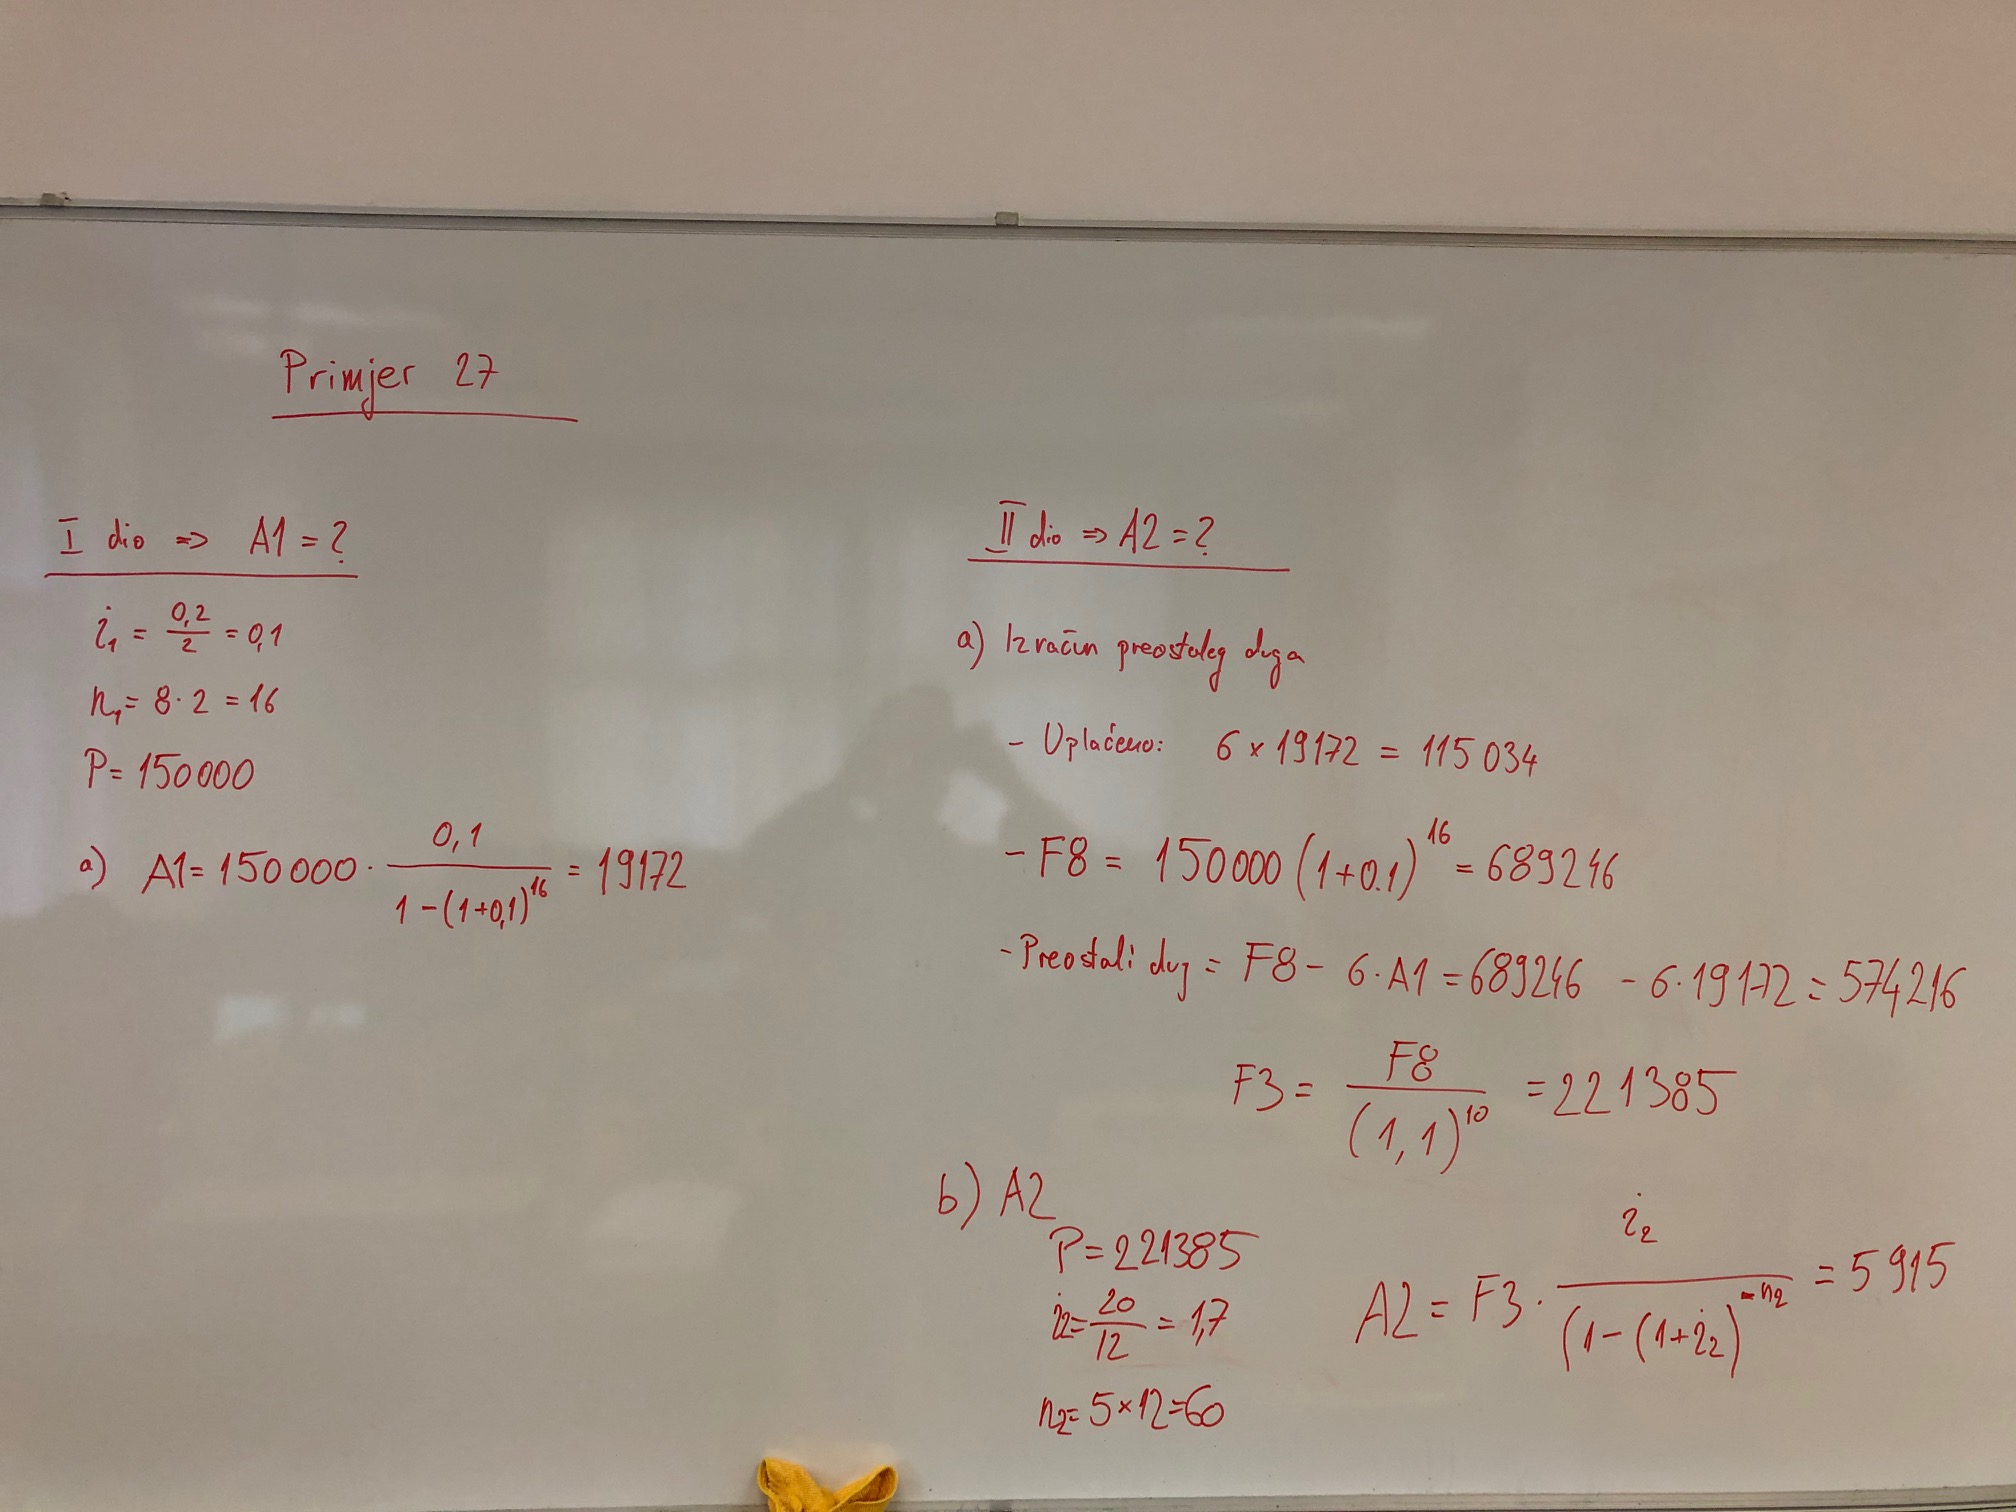 Primjer 27
I dio => A1 = ?
i₁ = 0,2/2 = 0,1
n₁ = 8·2 = 16
P = 150000
a) A1 = 150000 · 0,1/(1-(1+0,1)^16) = 19172
II dio => A2 = ?
a) Izračun preostaleg duga
- Uplaćeno: 6 x 19172 = 115 034
- F8 = 150000 (1+0.1)^16 = 689246
- Preostali dug = F8 - 6·A1 = 689246 - 6·19172 = 574216
F3 = F8/(1,1)^10 = 221385
b) A2
P = 221385
i2 = 20/12 = 1,7
n2 = 5x12 = 60
A2 = F3 · i₂/(1-(1+i₂)^-n₂ = 5 915